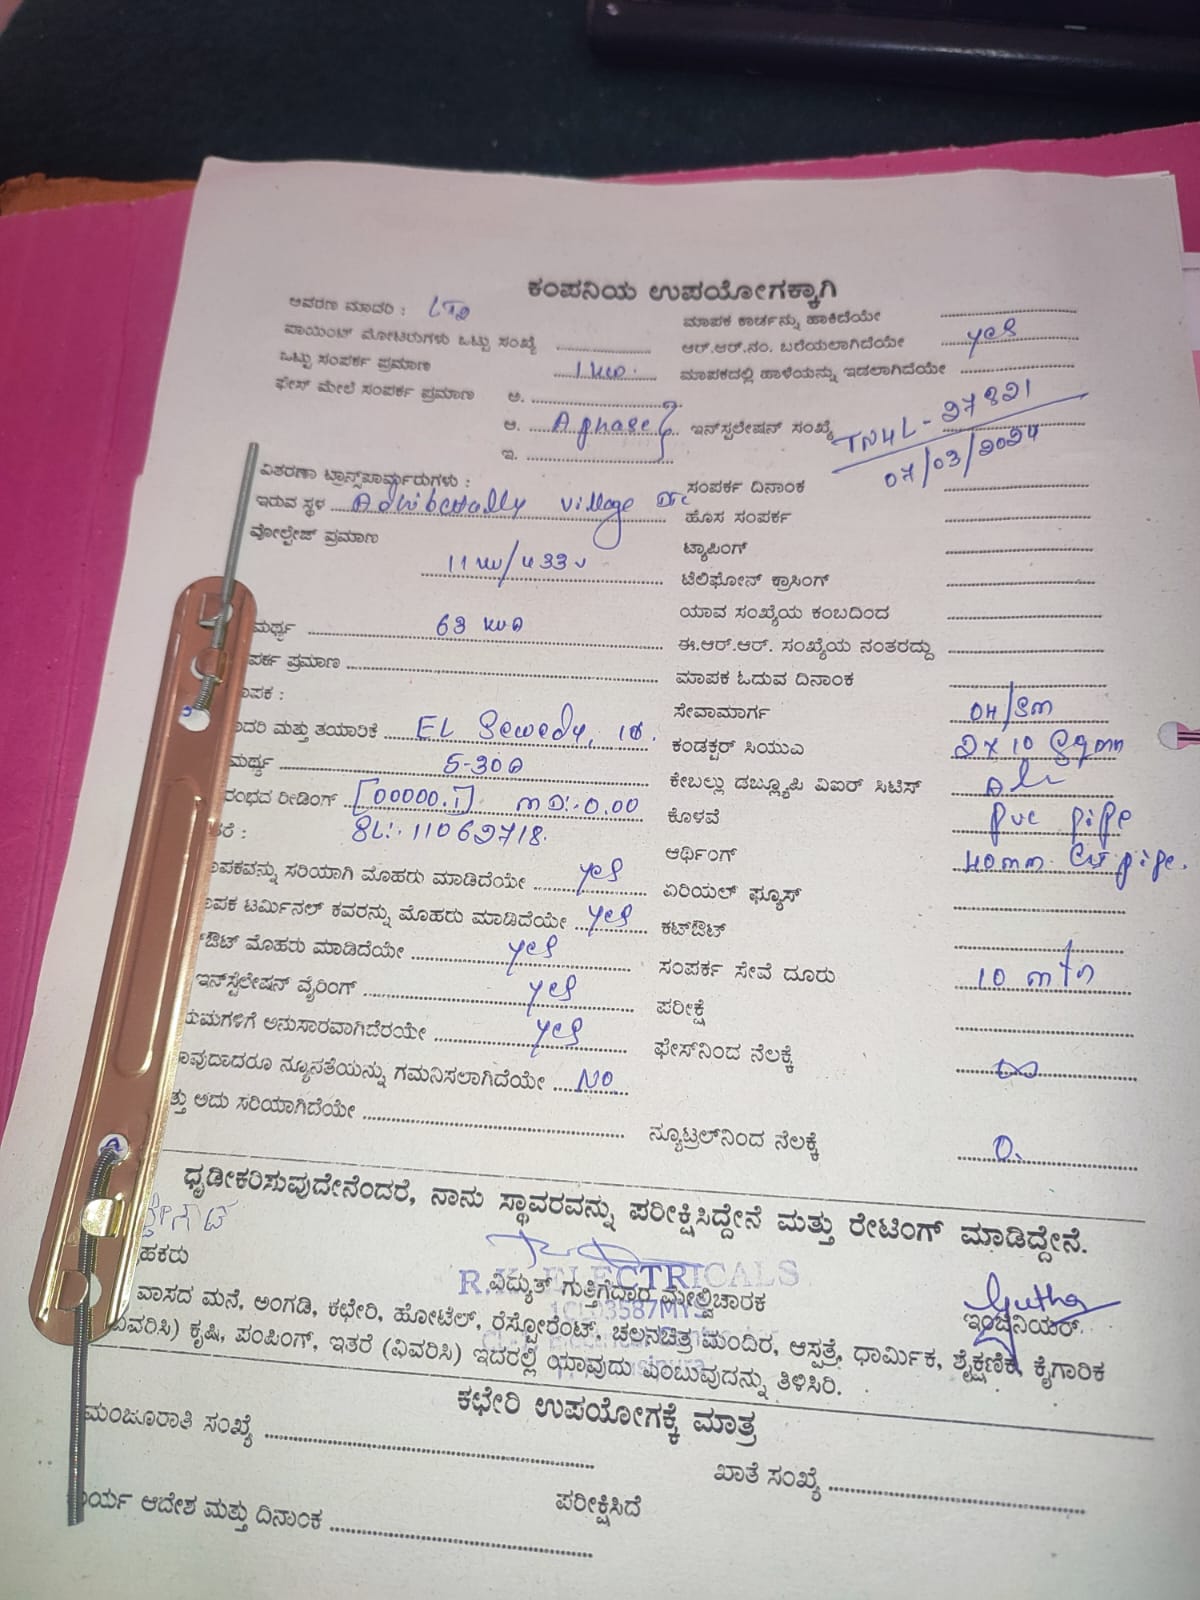 ಕಂಪನಿಯ ಉಪಯೋಗಕ್ಕಾಗಿ
ಆವರಣ ಮಾದರಿ :
ಪಾಯಿಂಟ್ ಮೋಟರುಗಳು ಒಟ್ಟು ಸಂಖ್ಯೆ
ಒಟ್ಟು ಸಂಪರ್ಕ ಪ್ರಮಾಣ 1 KW.
ಫೇಸ್ ಮೇಲೆ ಸಂಪರ್ಕ ಪ್ರಮಾಣ ಅ.
ಆ. A phase
ಇ.
ವಿತರಣಾ ಟ್ರಾನ್ಸ್‌ಫಾರ್ಮರುಗಳು :
ಇರುವ ಸ್ಥಳ village
ವೋಲ್ಟೇಜ್ ಪ್ರಮಾಣ
11 KV/433 V
ಮರ್ಥ್ಯ 63 KVA
ಪರ್ಕ ಪ್ರಮಾಣ
ಾಪಕ :
ಾದರಿ ಮತ್ತು ತಯಾರಿಕೆ EL Sewedy, 1Φ.
ಮರ್ಥ್ಯ 5-30A
ರಂಭದ ರೀಡಿಂಗ್ [00000.1] MD:-0.00
ತರೆ : SL:. 11062718.
ಾಪಕವನ್ನು ಸರಿಯಾಗಿ ಮೊಹರು ಮಾಡಿದೆಯೇ yes
ಾಪಕ ಟರ್ಮಿನಲ್ ಕವರನ್ನು ಮೊಹರು ಮಾಡಿದೆಯೇ yes
ಔಟ್ ಮೊಹರು ಮಾಡಿದೆಯೇ yes
ಇನ್‌ಸ್ಟಲೇಷನ್ ವೈರಿಂಗ್ yes
ಯಮಗಳಿಗೆ ಅನುಸಾರವಾಗಿದೆರಯೇ yes
ಾವುದಾದರೂ ನ್ಯೂನತೆಯನ್ನು ಗಮನಿಸಲಾಗಿದೆಯೇ NO
ತ್ತು ಅದು ಸರಿಯಾಗಿದೆಯೇ
ಮಾಪಕ ಕಾರ್ಡನ್ನು ಹಾಕಿದೆಯೇ
ಆರ್.ಆರ್.ನಂ. ಬರೆಯಲಾಗಿದೆಯೇ yes
ಮಾಪಕದಲ್ಲಿ ಹಾಳೆಯನ್ನು ಇಡಲಾಗಿದೆಯೇ
ಇನ್‌ಸ್ಟಲೇಷನ್ ಸಂಖ್ಯೆ TN4L-27821
07/03/2024
ಸಂಪರ್ಕ ದಿನಾಂಕ
ಹೊಸ ಸಂಪರ್ಕ
ಟ್ಯಾಪಿಂಗ್
ಟೆಲಿಫೋನ್ ಕ್ರಾಸಿಂಗ್
ಯಾವ ಸಂಖ್ಯೆಯ ಕಂಬದಿಂದ
ಈ.ಆರ್.ಆರ್. ಸಂಖ್ಯೆಯ ನಂತರದ್ದು
ಮಾಪಕ ಓದುವ ದಿನಾಂಕ
ಸೇವಾಮಾರ್ಗ OH/SM
ಕಂಡಕ್ಟರ್ ಸಿಯುವ 2 x 10 Sqmm
ಕೇಬಲ್ಲು ಡಬ್ಲ್ಯೂಪಿ ವಿಐಆರ್ ಸಿಟಿಸ್
ಕೊಳವೆ PVC pipe
ಆರ್ಥಿಂಗ್ 40mm. pipe.
ಏರಿಯಲ್ ಫ್ಯೂಸ್
ಕಟ್‌ಔಟ್
ಸಂಪರ್ಕ ಸೇವೆ ದೂರು 10 mtr
ಪರೀಕ್ಷೆ
ಫೇಸ್‌ನಿಂದ ನೆಲಕ್ಕೆ ∞
ನ್ಯೂಟ್ರಲ್‌ನಿಂದ ನೆಲಕ್ಕೆ 0.
ಧೃಡೀಕರಿಸುವುದೇನೆಂದರೆ, ನಾನು ಸ್ಥಾವರವನ್ನು ಪರೀಕ್ಷಿಸಿದ್ದೇನೆ ಮತ್ತು ರೇಟಿಂಗ್ ಮಾಡಿದ್ದೇನೆ.
R.K ELECTRICALS
ಹಕರು ವಿದ್ಯುತ್ ಗುತ್ತಿಗೆದಾರ ಮೇಲ್ವಿಚಾರಕ ಇಂಜಿನಿಯರ್.
ವಾಸದ ಮನೆ, ಅಂಗಡಿ, ಕಛೇರಿ, ಹೋಟೆಲ್, ರೆಸ್ಟೋರೆಂಟ್, ಚಲನಚಿತ್ರ ಮಂದಿರ, ಆಸ್ಪತ್ರೆ, ಧಾರ್ಮಿಕ, ಶೈಕ್ಷಣಿಕ, ಕೈಗಾರಿಕ
(ವಿವರಿಸಿ) ಕೃಷಿ, ಪಂಪಿಂಗ್, ಇತರೆ (ವಿವರಿಸಿ) ಇದರಲ್ಲಿ ಯಾವುದು ಎಂಬುವುದನ್ನು ತಿಳಿಸಿರಿ.
ಕಛೇರಿ ಉಪಯೋಗಕ್ಕೆ ಮಾತ್ರ
ಮಂಜೂರಾತಿ ಸಂಖ್ಯೆ ಖಾತೆ ಸಂಖ್ಯೆ
ಾರ್ಯ ಆದೇಶ ಮತ್ತು ದಿನಾಂಕ ಪರೀಕ್ಷಿಸಿದೆ